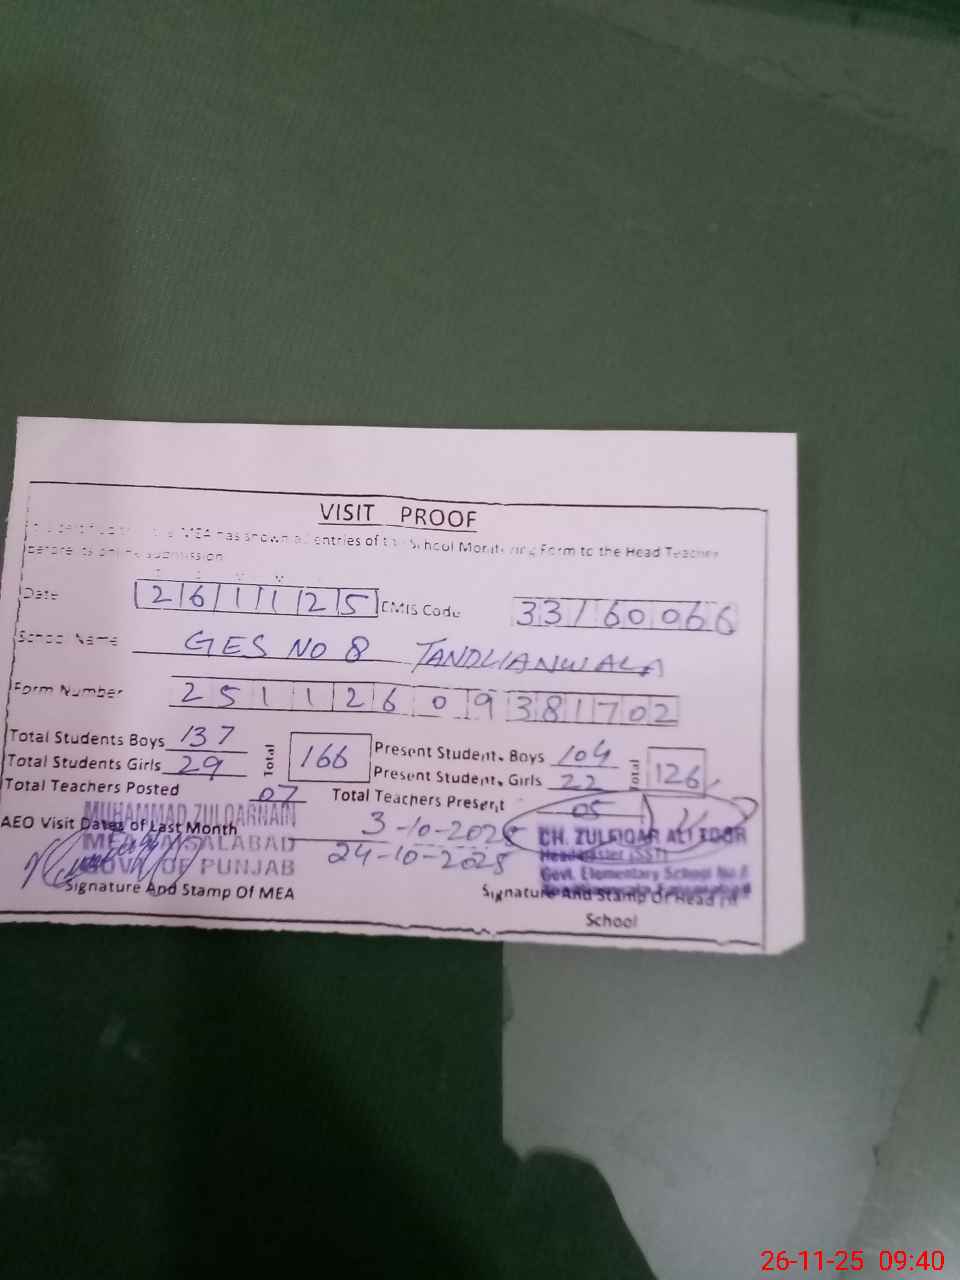 VISIT PROOF
MEA has shown all entries of the School Monitoring Form to the Head Teacher
before its online submission
Date 26 11 25 EMIS Code 33160066
School Name GES NO 8 TANDLIANWALA
Form Number 25112609381702
Total Students Boys 137 Total 166 Present Student, Boys 104 Total 126
Total Students Girls 29 Present Student, Girls 22
Total Teachers Posted 07 Total Teachers Present 05
AEO Visit Dates of Last Month 3-10-2025
24-10-2025
MUHAMMAD ZULQARNAIN
MEA FAISALABAD
GOVT OF PUNJAB
Signature And Stamp Of MEA
CH. ZULFIQAR ALI
Headmaster (SST)
Govt. Elementary School No.8
Signature And Stamp Of Head
School
26-11-25 09:40